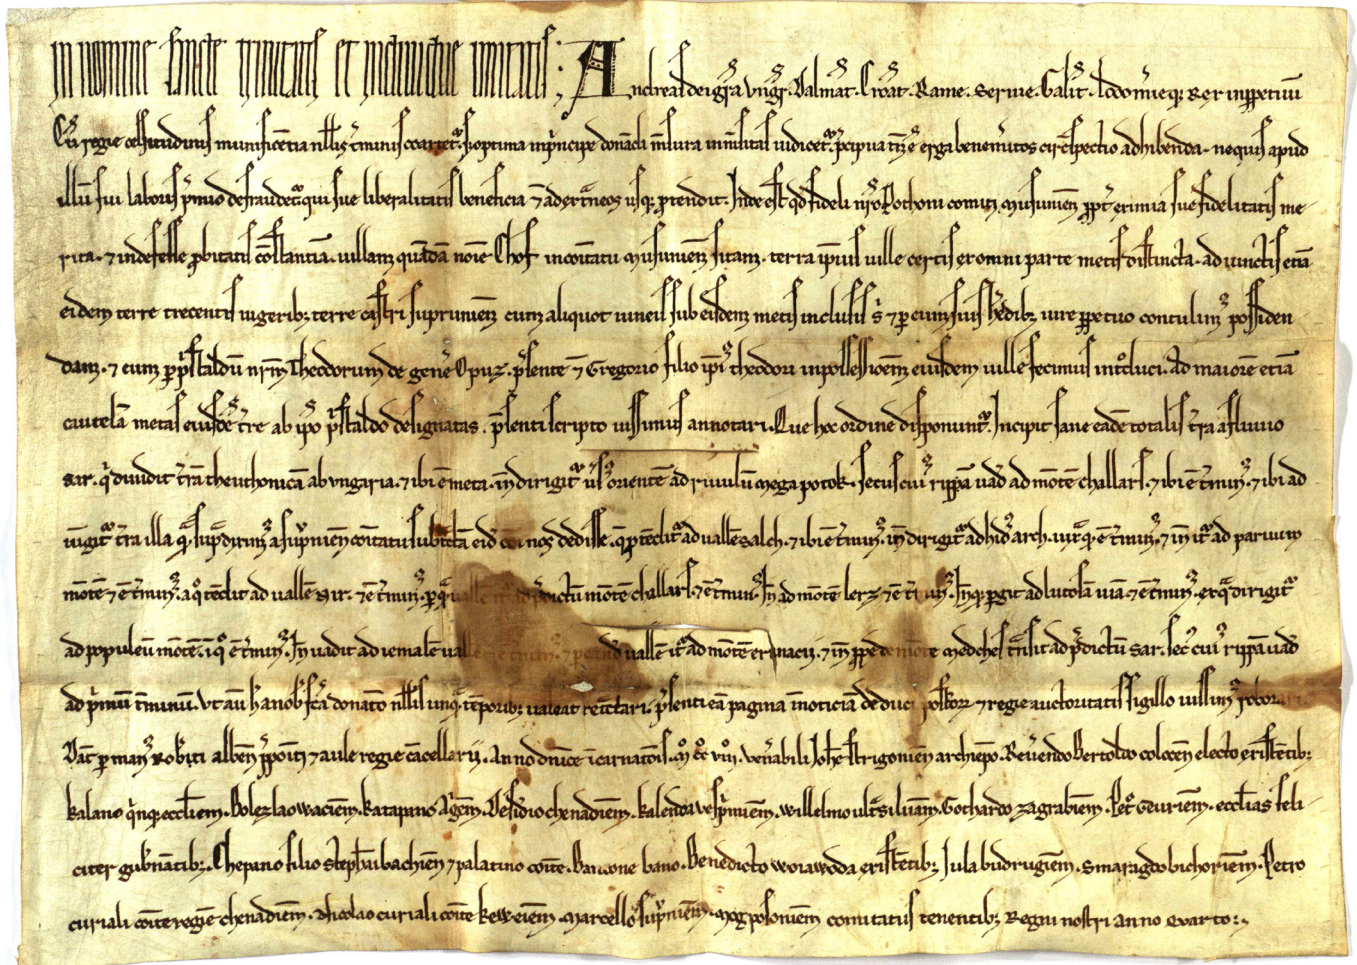 In nomine sancte trinitatis et individue unitatis; Andreas dei gr̃a Vngr̃. Dalmat̃. Croat̃. Rame. Seruie. Galit̃. Lodomieq; Rex inpp̱etuũ
Cũ regie celsitudinis munificẽtia nłłis t̃minis coartet̃. & optima inp̃ncipe donãdi mẽsura inmẽsitas iudicet̃. p̃cipua tñ ẽ erga benem̃itos circũspectio adhibenda. nequis apud
illũ sui laboris p̃mio defraudet̃ qui sue liberalitatis beneficia & ad ext̃neos usq; p̃tendit. Inde est qd̃ fideli nr̃o Pothoni comiti Musuniẽn p̱pt̃ eximia sue fidelitatis me-
rita. & indefesse p̱bitatis cõstantiã. uillam quãdã noĩe Chof incomitatu Musuniẽn sitam. terra ip̃ius uille certis ex omni parte metis distincta. adiunctis etiã
eidem terre trecentis iugerib; terre castri supruniẽn cum aliquot uineis sub eisdem metis inclusis s̃ & p̱ eum suis h̃edib; iure pp̱etuo contulim⁹ possiden-
dam. & cum p̱ p̃staldũ nr̃m Theodorum de geñe Opuz. p̃sente & Gregorio filio ip̃i⁹ theodori inpossessioẽm eiusdem uille fecimus int̃duci. Ad maiorẽ etiã
cautelã metas eiusdẽ t̃re ab ip̃o p̃staldo designatas. p̃senti scripto iussimus annotari. Que hoc ordine disponunt̃. Incipit sane eadẽ totalis t̃ra a fluuio
sar. q̃ diuidit t̃rã theuthonicã ab ungaria. & ibi ẽ meta. iñ dirigit̃ ũs⁹ orientẽ ad riuulũ Megapotok. secus cui⁹ rippã uad̃ ad mõtẽ challars. & ibi ẽ t̃min⁹. & ibi ad
iũgit̃ t̃ra illa q̃ sup̃ dixim⁹ a sup̃niẽn comitatu eid̃ nos dedisse. q̃ p̱tẽdit̃ ad uallẽ salch. & ibi ẽ t̃min⁹. iñ dirigit̃ ad hid⁹ arch. & ẽ t̃min⁹. & iñ it̃ ad paruum
mõtẽ & ẽ t̃min⁹. a q̊ tẽdit ad uallẽ sir. & ẽ t̃min⁹. p̱ q̃ uallẽ ad p̃dictũ mõtẽ challars. & ẽ t̃min⁹. Iñ ad mõtẽ lerz & ẽ t̃min⁹. Iñ p̱git ad lutosã uiã & ẽ t̃min⁹. ex q̃ dirigit̃
ad populeũ mõtẽ. ĩ q̊ ẽ t̃min⁹. Iñ uadit ad iemalẽ uallẽ & ẽ t̃min⁹. & uallẽ it̃ ad mõtẽ erinacij. & iñ p̱pe de monte Medehes trãsit ad p̃dictũ sar. sec⁹ cui⁹ rippã uad̃
ad p̃mũ t̃minũ. Vt aũ h̃ a nob̃ fc̃a donatio nłłis unq̃ tẽporib; ualeat ret̃ctari. p̃senti eã paginã innoticiã deduci post̃or⁊ & regie auctoritatis sigillo iussim⁹ roborari.
Dat̃ p̱ man⁹ Rob̃ti alben̄ p̃poiti & aule regie cãcellarij. Anno dnĩce ĩcarnatõis. M̊ c̊c̊ viii̊. Veñabili Joh̃e strigoniẽn archiep̃o. Reu̓endo Bertoldo colocẽn electo existẽtib;
kalano q̃nq; eccl̃iẽm. Bolezlao waciẽm. Katapino Ag̃ẽm. Desid̃io chenadiẽm. kalenda vesp̃miẽm. Willelmo ult̃siluãm. Gothardo zagrabiẽm. Pet̃ Geuriẽm. eccl̃ias feli-
citer gub̃nãtib;. Chepano filio steph̃i bachiẽn & palatino coĩte. Bancone bano. Benedicto woiawoda existẽtib; Jula budrugiẽm. Smaragdo bichoriẽm. Petro
curiali coĩte regiẽ chenadiẽm. Nicolao curiali coĩte keweiẽm. Marcello sup̃niẽm. Mog posoniẽm comitatus tenentib; Regni nostri anno Quarto:~